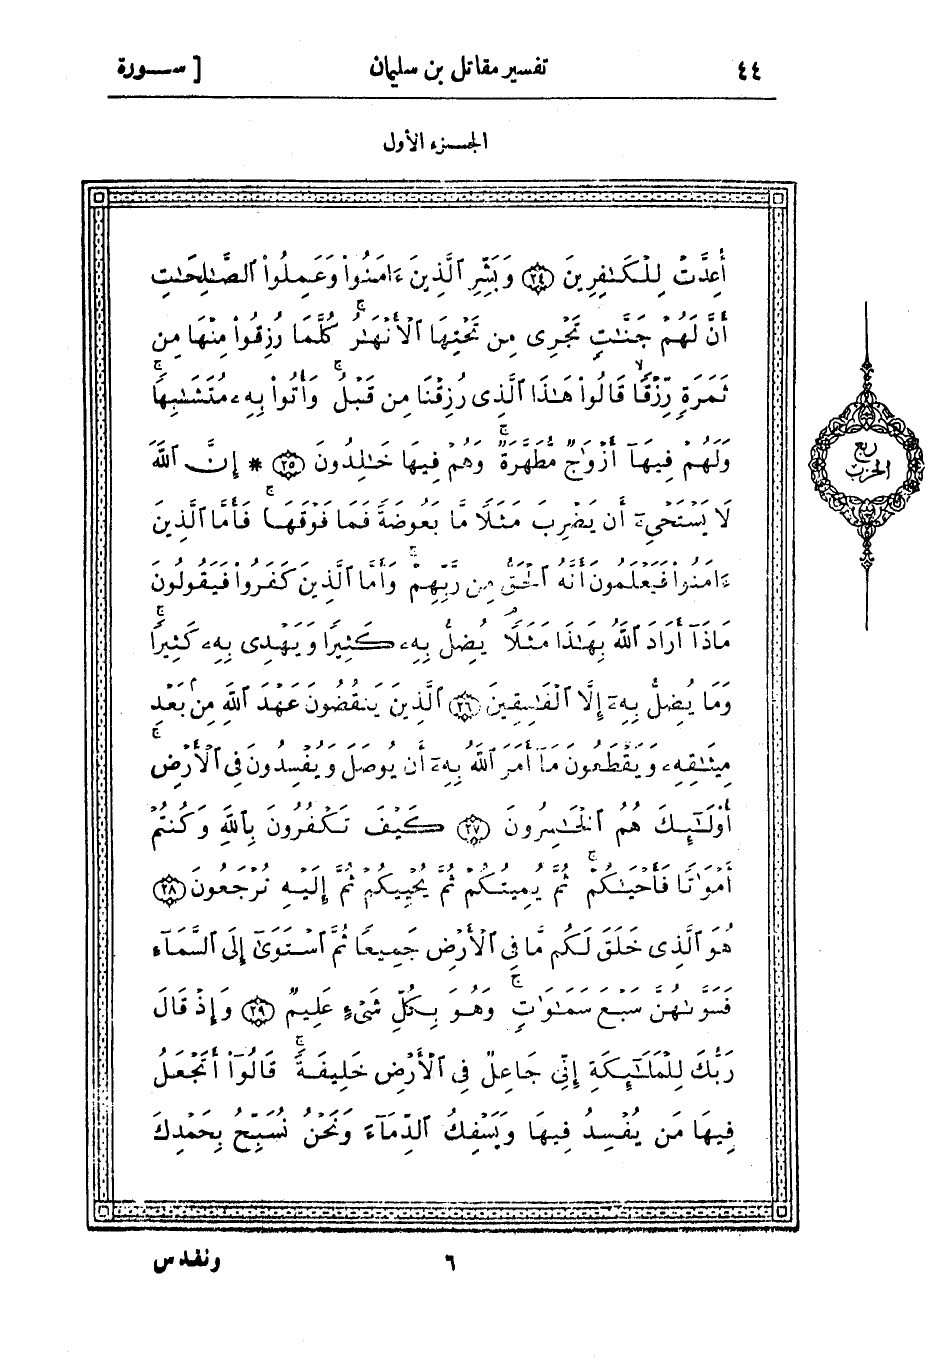 ٤٤ تفسير مقاتل بن سليمان [ ســورة
الجــزء الأول
أُعِدَّتْ لِلْكَـٰفِرِينَ ﴿٢٤﴾ وَبَشِّرِ ٱلَّذِينَ ءَامَنُوا۟ وَعَمِلُوا۟ ٱلصَّـٰلِحَـٰتِ
أَنَّ لَهُمْ جَنَّـٰتٍ تَجْرِى مِن تَحْتِهَا ٱلْأَنْهَـٰرُ ۖ كُلَّمَا رُزِقُوا۟ مِنْهَا مِن
ثَمَرَةٍ رِّزْقًا ۙ قَالُوا۟ هَـٰذَا ٱلَّذِى رُزِقْنَا مِن قَبْلُ ۖ وَأُتُوا۟ بِهِۦ مُتَشَـٰبِهًا ۖ
وَلَهُمْ فِيهَآ أَزْوَٰجٌ مُّطَهَّرَةٌ ۖ وَهُمْ فِيهَا خَـٰلِدُونَ ﴿٢٥﴾ * إِنَّ ٱللَّهَ
ربع
الحزب
لَا يَسْتَحْىِۦٓ أَن يَضْرِبَ مَثَلًا مَّا بَعُوضَةً فَمَا فَوْقَهَا ۚ فَأَمَّا ٱلَّذِينَ
ءَامَنُوا۟ فَيَعْلَمُونَ أَنَّهُ ٱلْحَقُّ مِن رَّبِّهِمْ ۖ وَأَمَّا ٱلَّذِينَ كَفَرُوا۟ فَيَقُولُونَ
مَاذَآ أَرَادَ ٱللَّهُ بِهَـٰذَا مَثَلًا ۘ يُضِلُّ بِهِۦ كَثِيرًا وَيَهْدِى بِهِۦ كَثِيرًا ۚ
وَمَا يُضِلُّ بِهِۦٓ إِلَّا ٱلْفَـٰسِقِينَ ﴿٢٦﴾ ٱلَّذِينَ يَنقُضُونَ عَهْدَ ٱللَّهِ مِنۢ بَعْدِ
مِيثَـٰقِهِۦ وَيَقْطَعُونَ مَآ أَمَرَ ٱللَّهُ بِهِۦٓ أَن يُوصَلَ وَيُفْسِدُونَ فِى ٱلْأَرْضِ ۚ
أُو۟لَـٰٓئِكَ هُمُ ٱلْخَـٰسِرُونَ ﴿٢٧﴾ كَيْفَ تَكْفُرُونَ بِٱللَّهِ وَكُنتُمْ
أَمْوَٰتًا فَأَحْيَـٰكُمْ ۖ ثُمَّ يُمِيتُكُمْ ثُمَّ يُحْيِيكُمْ ثُمَّ إِلَيْهِ تُرْجَعُونَ ﴿٢٨﴾
هُوَ ٱلَّذِى خَلَقَ لَكُم مَّا فِى ٱلْأَرْضِ جَمِيعًا ثُمَّ ٱسْتَوَىٰٓ إِلَى ٱلسَّمَآءِ
فَسَوَّىٰهُنَّ سَبْعَ سَمَـٰوَٰتٍ ۚ وَهُوَ بِكُلِّ شَىْءٍ عَلِيمٌ ﴿٢٩﴾ وَإِذْ قَالَ
رَبُّكَ لِلْمَلَـٰٓئِكَةِ إِنِّى جَاعِلٌ فِى ٱلْأَرْضِ خَلِيفَةً ۖ قَالُوٓا۟ أَتَجْعَلُ
فِيهَا مَن يُفْسِدُ فِيهَا وَيَسْفِكُ ٱلدِّمَآءَ وَنَحْنُ نُسَبِّحُ بِحَمْدِكَ
٦ ونقدس